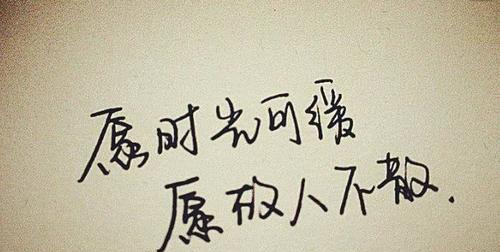 愿时光可缓
愿故人不散.